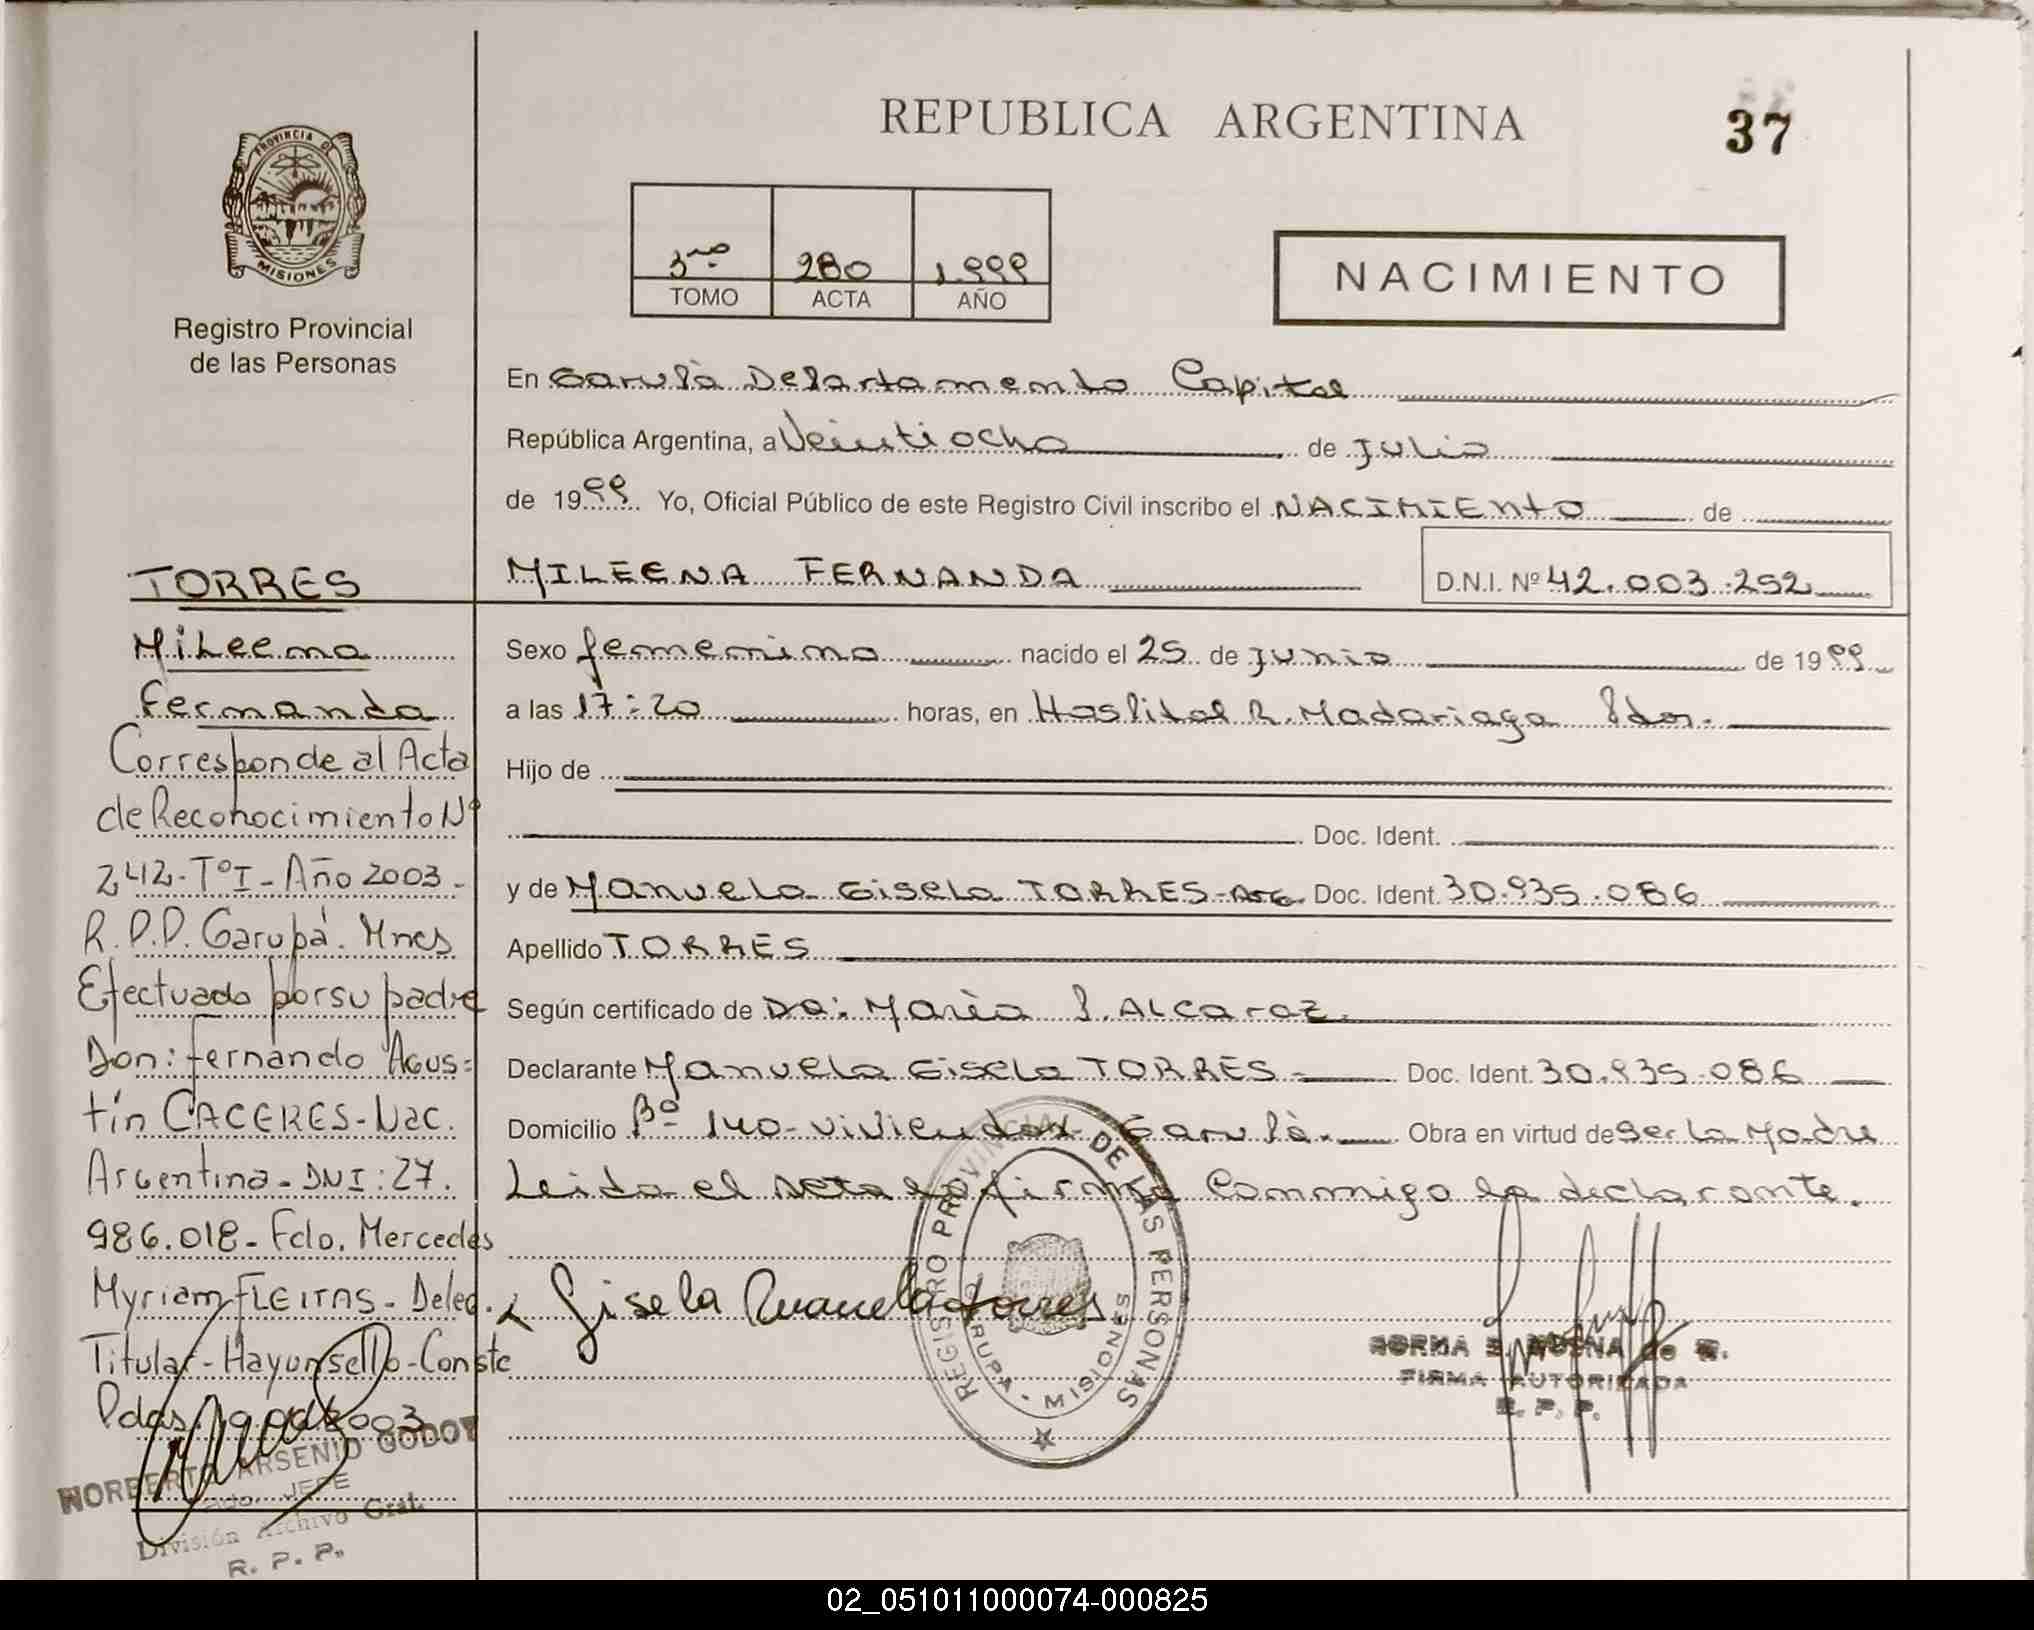 REPUBLICA ARGENTINA
37
PROVINCIA DE
MISIONES
Registro Provincial
de las Personas
3ro 280 1.999
TOMO ACTA AÑO
NACIMIENTO
En Garupà Departamento Capital
República Argentina, a Veintiocho de Julio
de 1999 Yo, Oficial Público de este Registro Civil inscribo el NACIMIENTO de
MILEENA FERNANDA D.N.I. Nº 42.003.252
Sexo femenino nacido el 25 de Junio de 1999
a las 17:20 horas, en Hospital R. Madariaga Pdas.
Hijo de
Doc. Ident.
y de Manuela Gisela TORRES-Arg. Doc. Ident. 30.935.086
Apellido TORRES
Según certificado de Da: Marìa P. ALCaraz.
Declarante Manuela Gisela TORRES - Doc. Ident. 30.935.086
Domicilio Bº 140-viviendas Garupà. Obra en virtud de ser la Madre
Leida el acta la firma conmigo la declarante.
Gisela Manuela torres
REGISTRO PROVINCIAL DE LAS PERSONAS
GARUPA - MISIONES
FIRMA AUTORIZADA
R. P. P.
TORRES
Mileena
Fernanda
Corresponde al Acta
de Reconocimiento Nº
242-TºI-Año 2003-
R.P.P. Garupá. Mnes
Efectuado por su padre
Don: fernando Agus=
tín CACERES-Nac.
Argentina-DNI:27.
986.018-Fdo. Mercedes
Myriam FLEITAS-Deleg.
Titular-Hay un sello-Conste
Pdas. 2003
NORBERTO ARSENIO GODOY
JEFE
División Archivo Gral.
R. P. P.
02_051011000074-000825